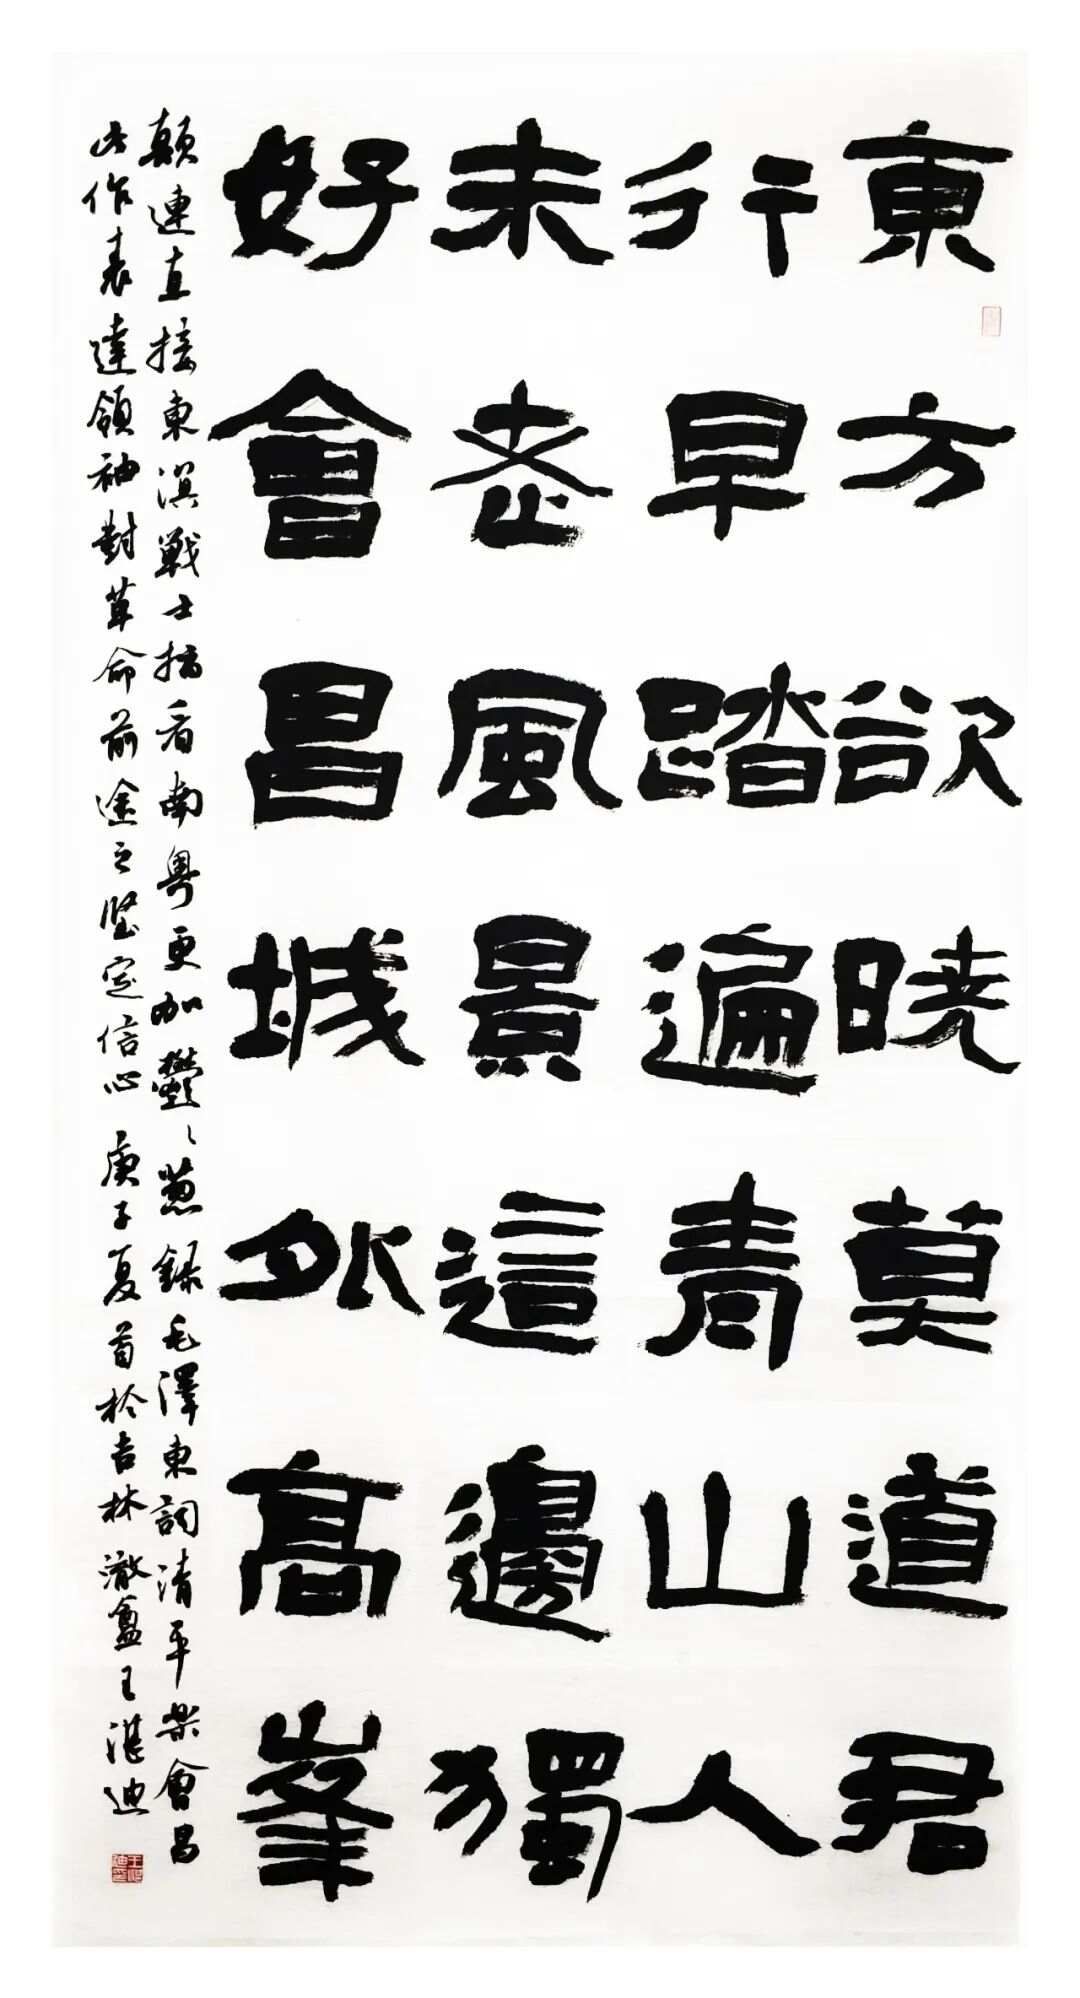 東方欲曉莫道君
行早踏遍青山人
未老風景這邊獨
好會昌城外高峯
顛連直接東溟戰士指看南粵更加鬱〻蔥錄毛澤東詞清平樂會昌
此作表達領袖對革命前途之堅定信心庚子夏首於吉林澂盦王湛迪